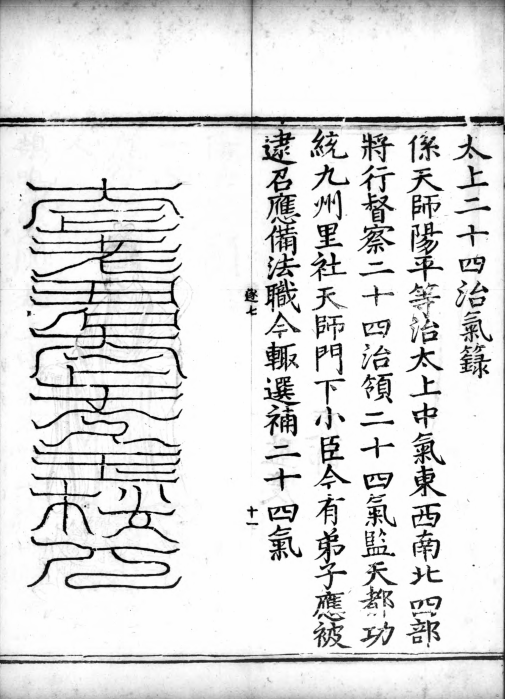 太上二十四治氣籙
係天師陽平等治太上中氣東西南北四部
將行督察二十四治領二十四氣監天都功
統九州里社天師門下小臣今有弟子應被
逮召應備法職今輙選補二十四氣
十一